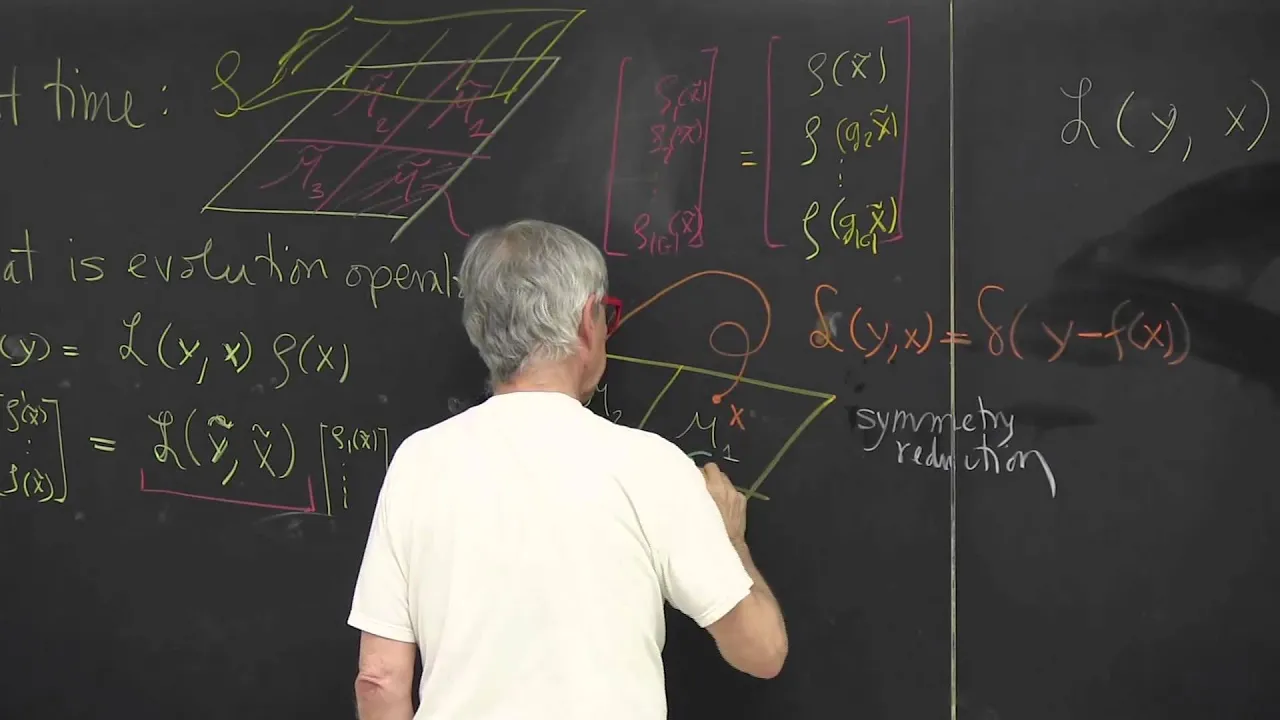 t time: ρ
M̃₂ M̃₁
M̃₃ M̃
[ρ₁(x̃) ρ₂(x̃) ⋮ ρ_|G|(x̃)] = [ρ(x̃) ρ(g₂x̃) ⋮ ρ(g_|G|x̃)]
ℒ(y, x)
at is evolution operat
(y) = ℒ(y, x) ρ(x)
ℒ(y,x) = δ(y-f(x))
= ℒ(ỹ, x̃) [ρ₁(x̃) ⋮
M₁ x
symmetry
reduction